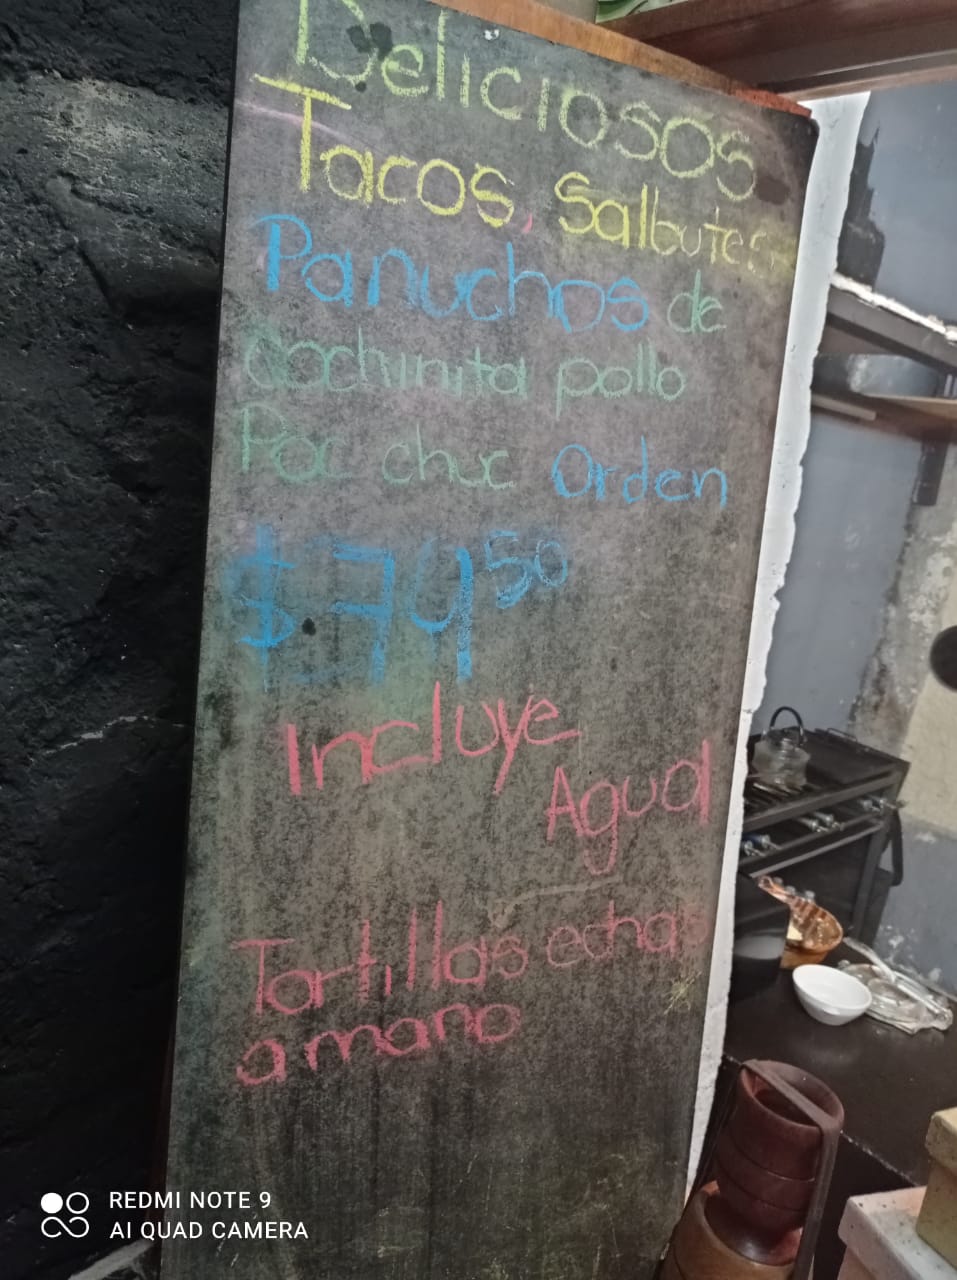 Deliciosos
Tacos, Salbutes
Panuchos de
Cochinita pollo
Poc chuc Orden
$74 50
Incluye
Agua
Tortillas echas
a mano
REDMI NOTE 9
AI QUAD CAMERA